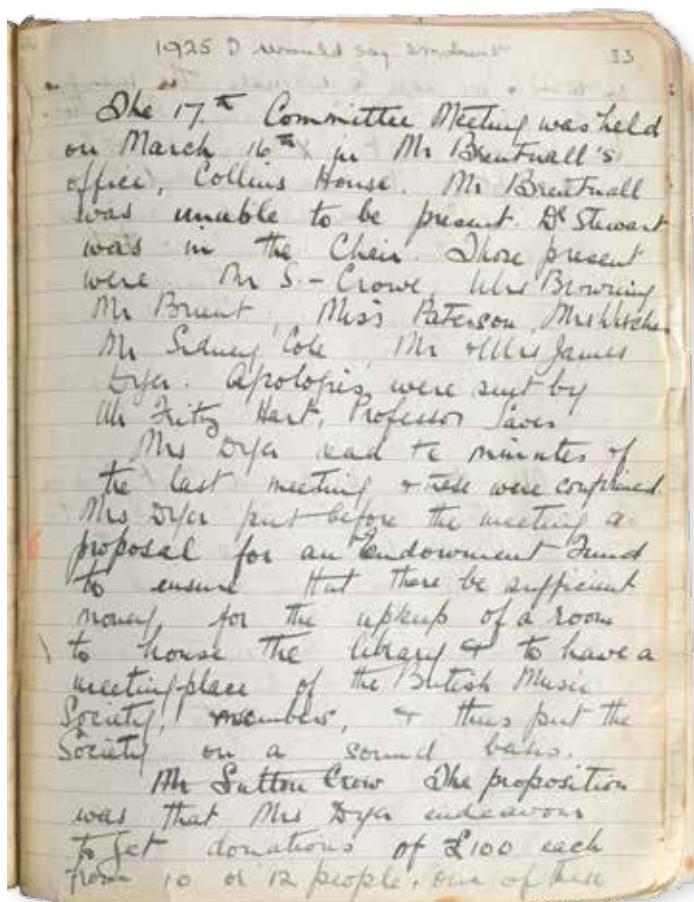 1925 I would say
33
The 17th Committee Meeting was held
on March 16th in Mr Brentnall's
office, Collins House. Mr Brentnall
was unable to be present. Dr Stewart
was in the Chair. Those present
were Mr S. - Crowe, Mrs Browning
Mr Brunt, Miss Paterson, Mrs
Mr Sidney Cole, Mr & Mrs James
Dyer. Apologies were sent by
Mr Fritz Hart, Professor Laver
Mrs Dyer read the minutes of
the last meeting & these were confirmed.
Mrs Dyer put before the meeting a
proposal for an Endowment Fund
to ensure that there be sufficient
money for the upkeep of a room
to house the library & to have a
meeting-place of the British Music
Society, members, & thus put the
Society on a sound basis.
Mr Sutton Crow The proposition
was that Mrs Dyer endeavour
to get donations of £100 each
from 10 or 12 people, one of these